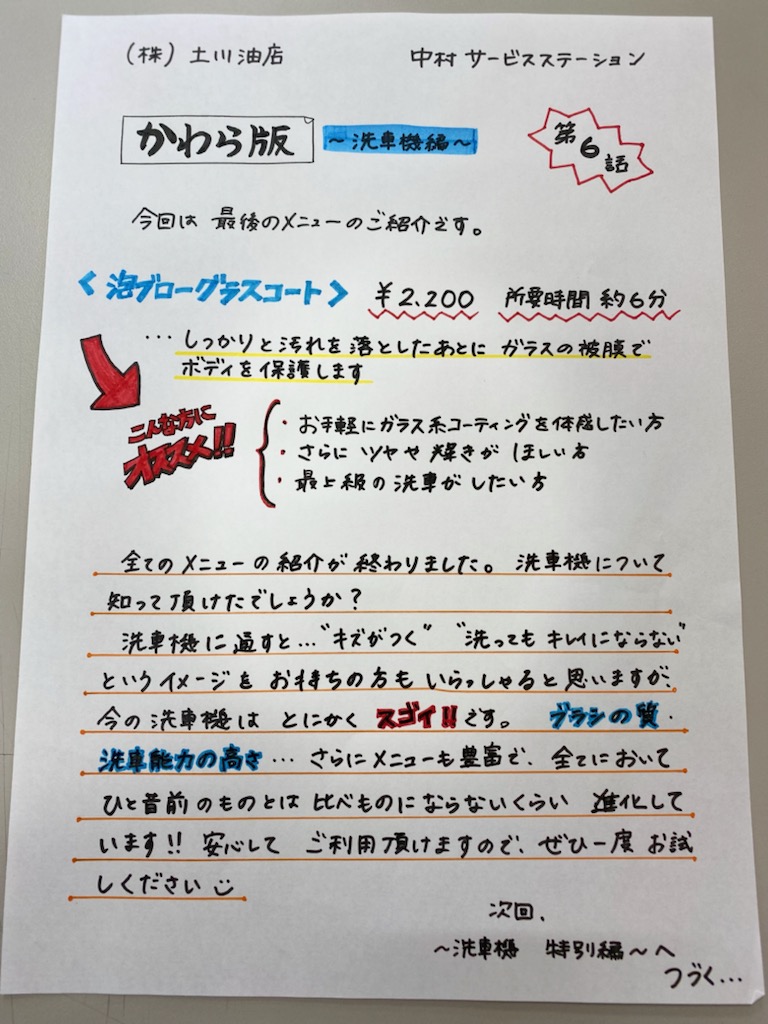 (株) 土川油店 中村 サービスステーション
かわら版 ～洗車機編～ 第6話
今回は 最後のメニューのご紹介です。
〈泡ブローグラスコート〉 ¥2,200 所要時間 約6分
… しっかりと汚れを落としたあとに ガラスの被膜で
ボディを保護します
こんな方に
オススメ!!
・お手軽にガラス系コーティングを体感したい方
・さらに ツヤや 輝きが ほしい方
・最上級の洗車がしたい方
全てのメニューの紹介が終わりました。 洗車機について
知って頂けたでしょうか？
洗車機に通すと…"キズがつく" "洗っても キレイにならない"
というイメージを お持ちの方も いらっしゃると思いますが、
今の洗車機は とにかく スゴイ!!です。 ブラシの質・
洗車能力の高さ… さらにメニューも豊富で、全てにおいて
ひと昔前のものとは 比べものにならないくらい 進化して
います!! 安心して ご利用頂けますので、ぜひ一度 お試
しください
次回、
～洗車機 特別編～へ
つづく…